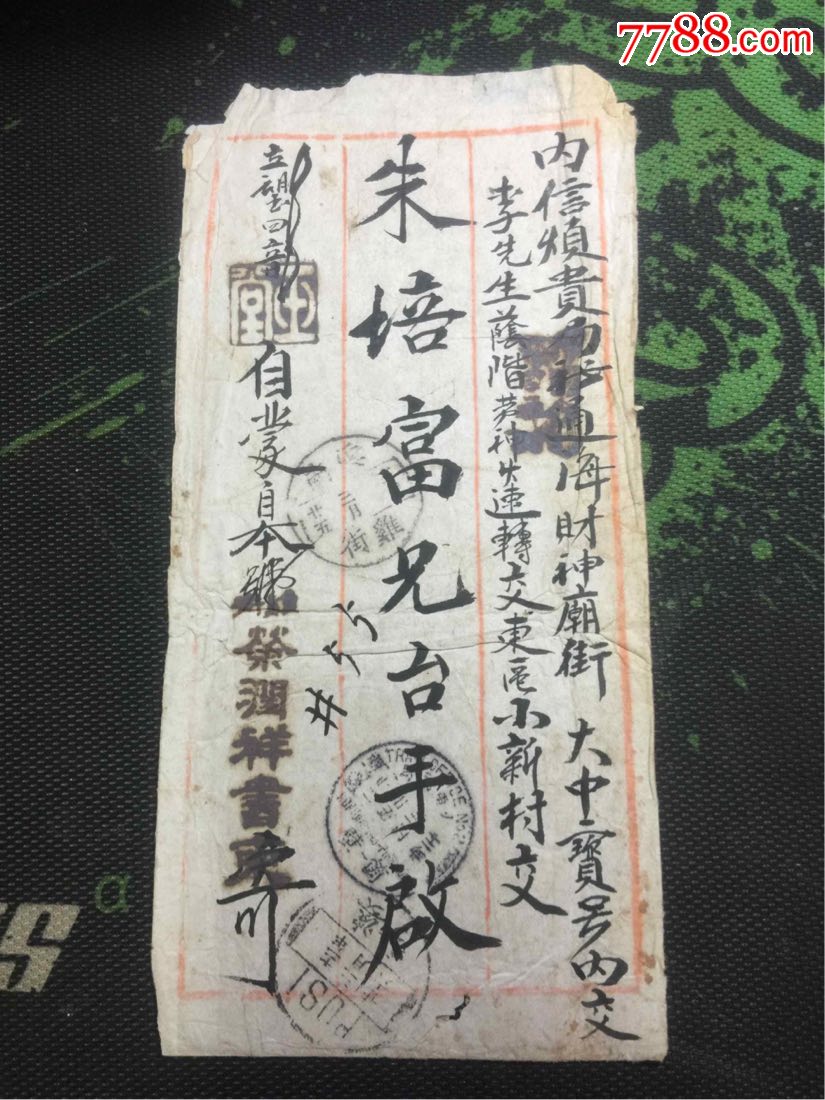 7788.com
内信煩貴局祈通海財神廟街 大中寶号内交
李先生蔭階 神大速轉交東區小新村交
朱培富兄台手啟
立望回音
自蒙自本號榮潤祥書柬
雞街
二月
廿五
TRAV OFFICE No.
PUSI
α
S